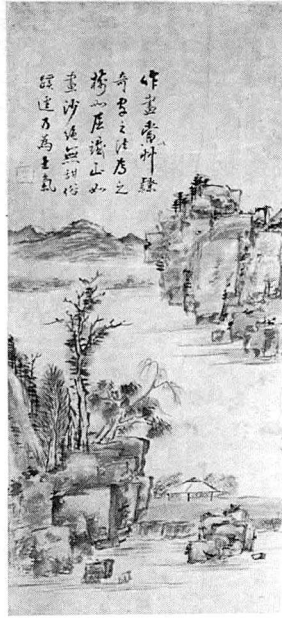 作畫當艸隸
奇字之法為之
樹如屈鐵山如
畫沙絕無甜俗
蹊逕乃為士氣